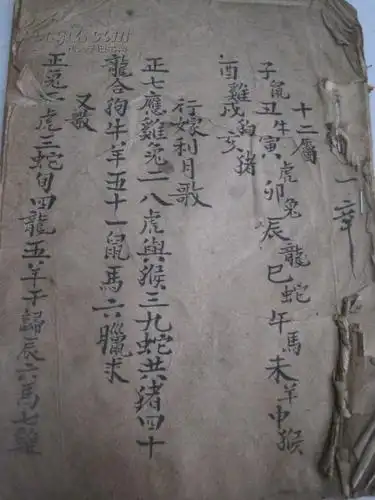 一章
十二屬
子鼠丑牛寅虎卯兔辰龍巳蛇午馬未羊申猴
酉雞戌狗亥猪
行嫁利月歌
正七應雞兔二八虎與猴三九蛇共猪四十
龍合狗牛羊五十一鼠馬六臘求
又歌
正兔二虎三蛇旬四龍五羊午歸辰六馬七